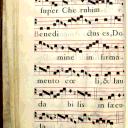 super Che rubim.
Benedi ctus es, Do
mine in firma
mento cœ li, & lau
da bi lis in sæcu